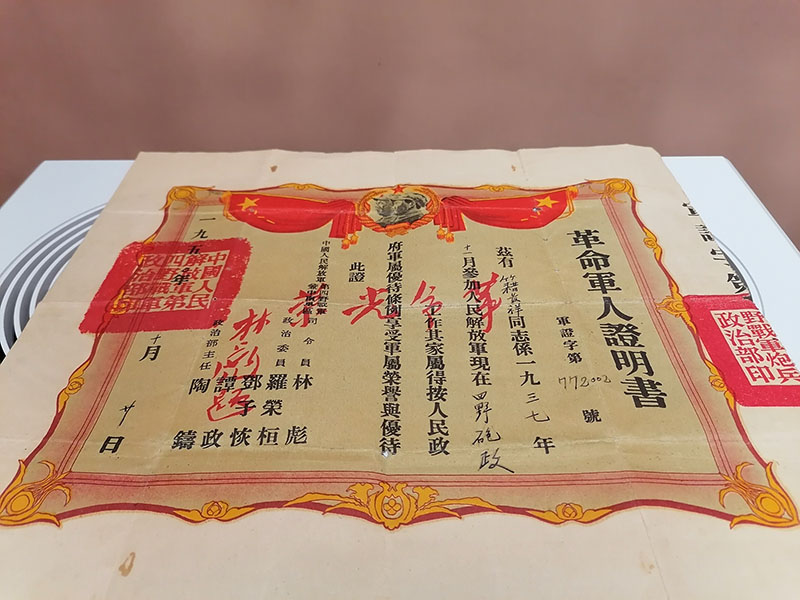 革命軍人證明書
軍證字第772002號
茲有 同志係一九三七年
十一月參加人民解放軍現在四野砲政
工作其家屬得按人民政
府軍屬優待條例享受軍屬榮譽與優待
此證
革命光榮
中國人民解放軍第四野戰軍
兼中南軍區
司令員 林彪
政治委員 羅榮桓
鄧子恢
譚政
政治部主任 陶鑄
一九五 年十月廿日
中國人民
解放軍第
四野戰軍
政治部
野戰軍炮兵
政治部印